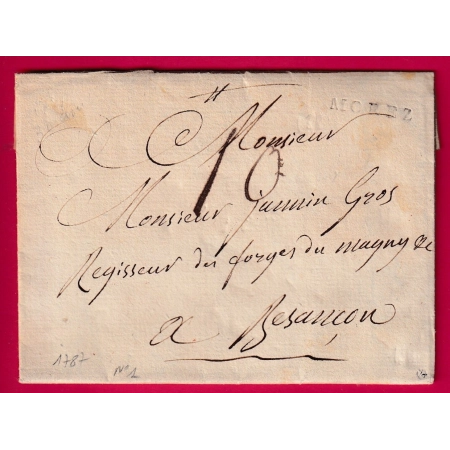 Monsieur
Monsieur jannin Gros
Regisseur des forges du magny &c
a Besançon
1787
N°1